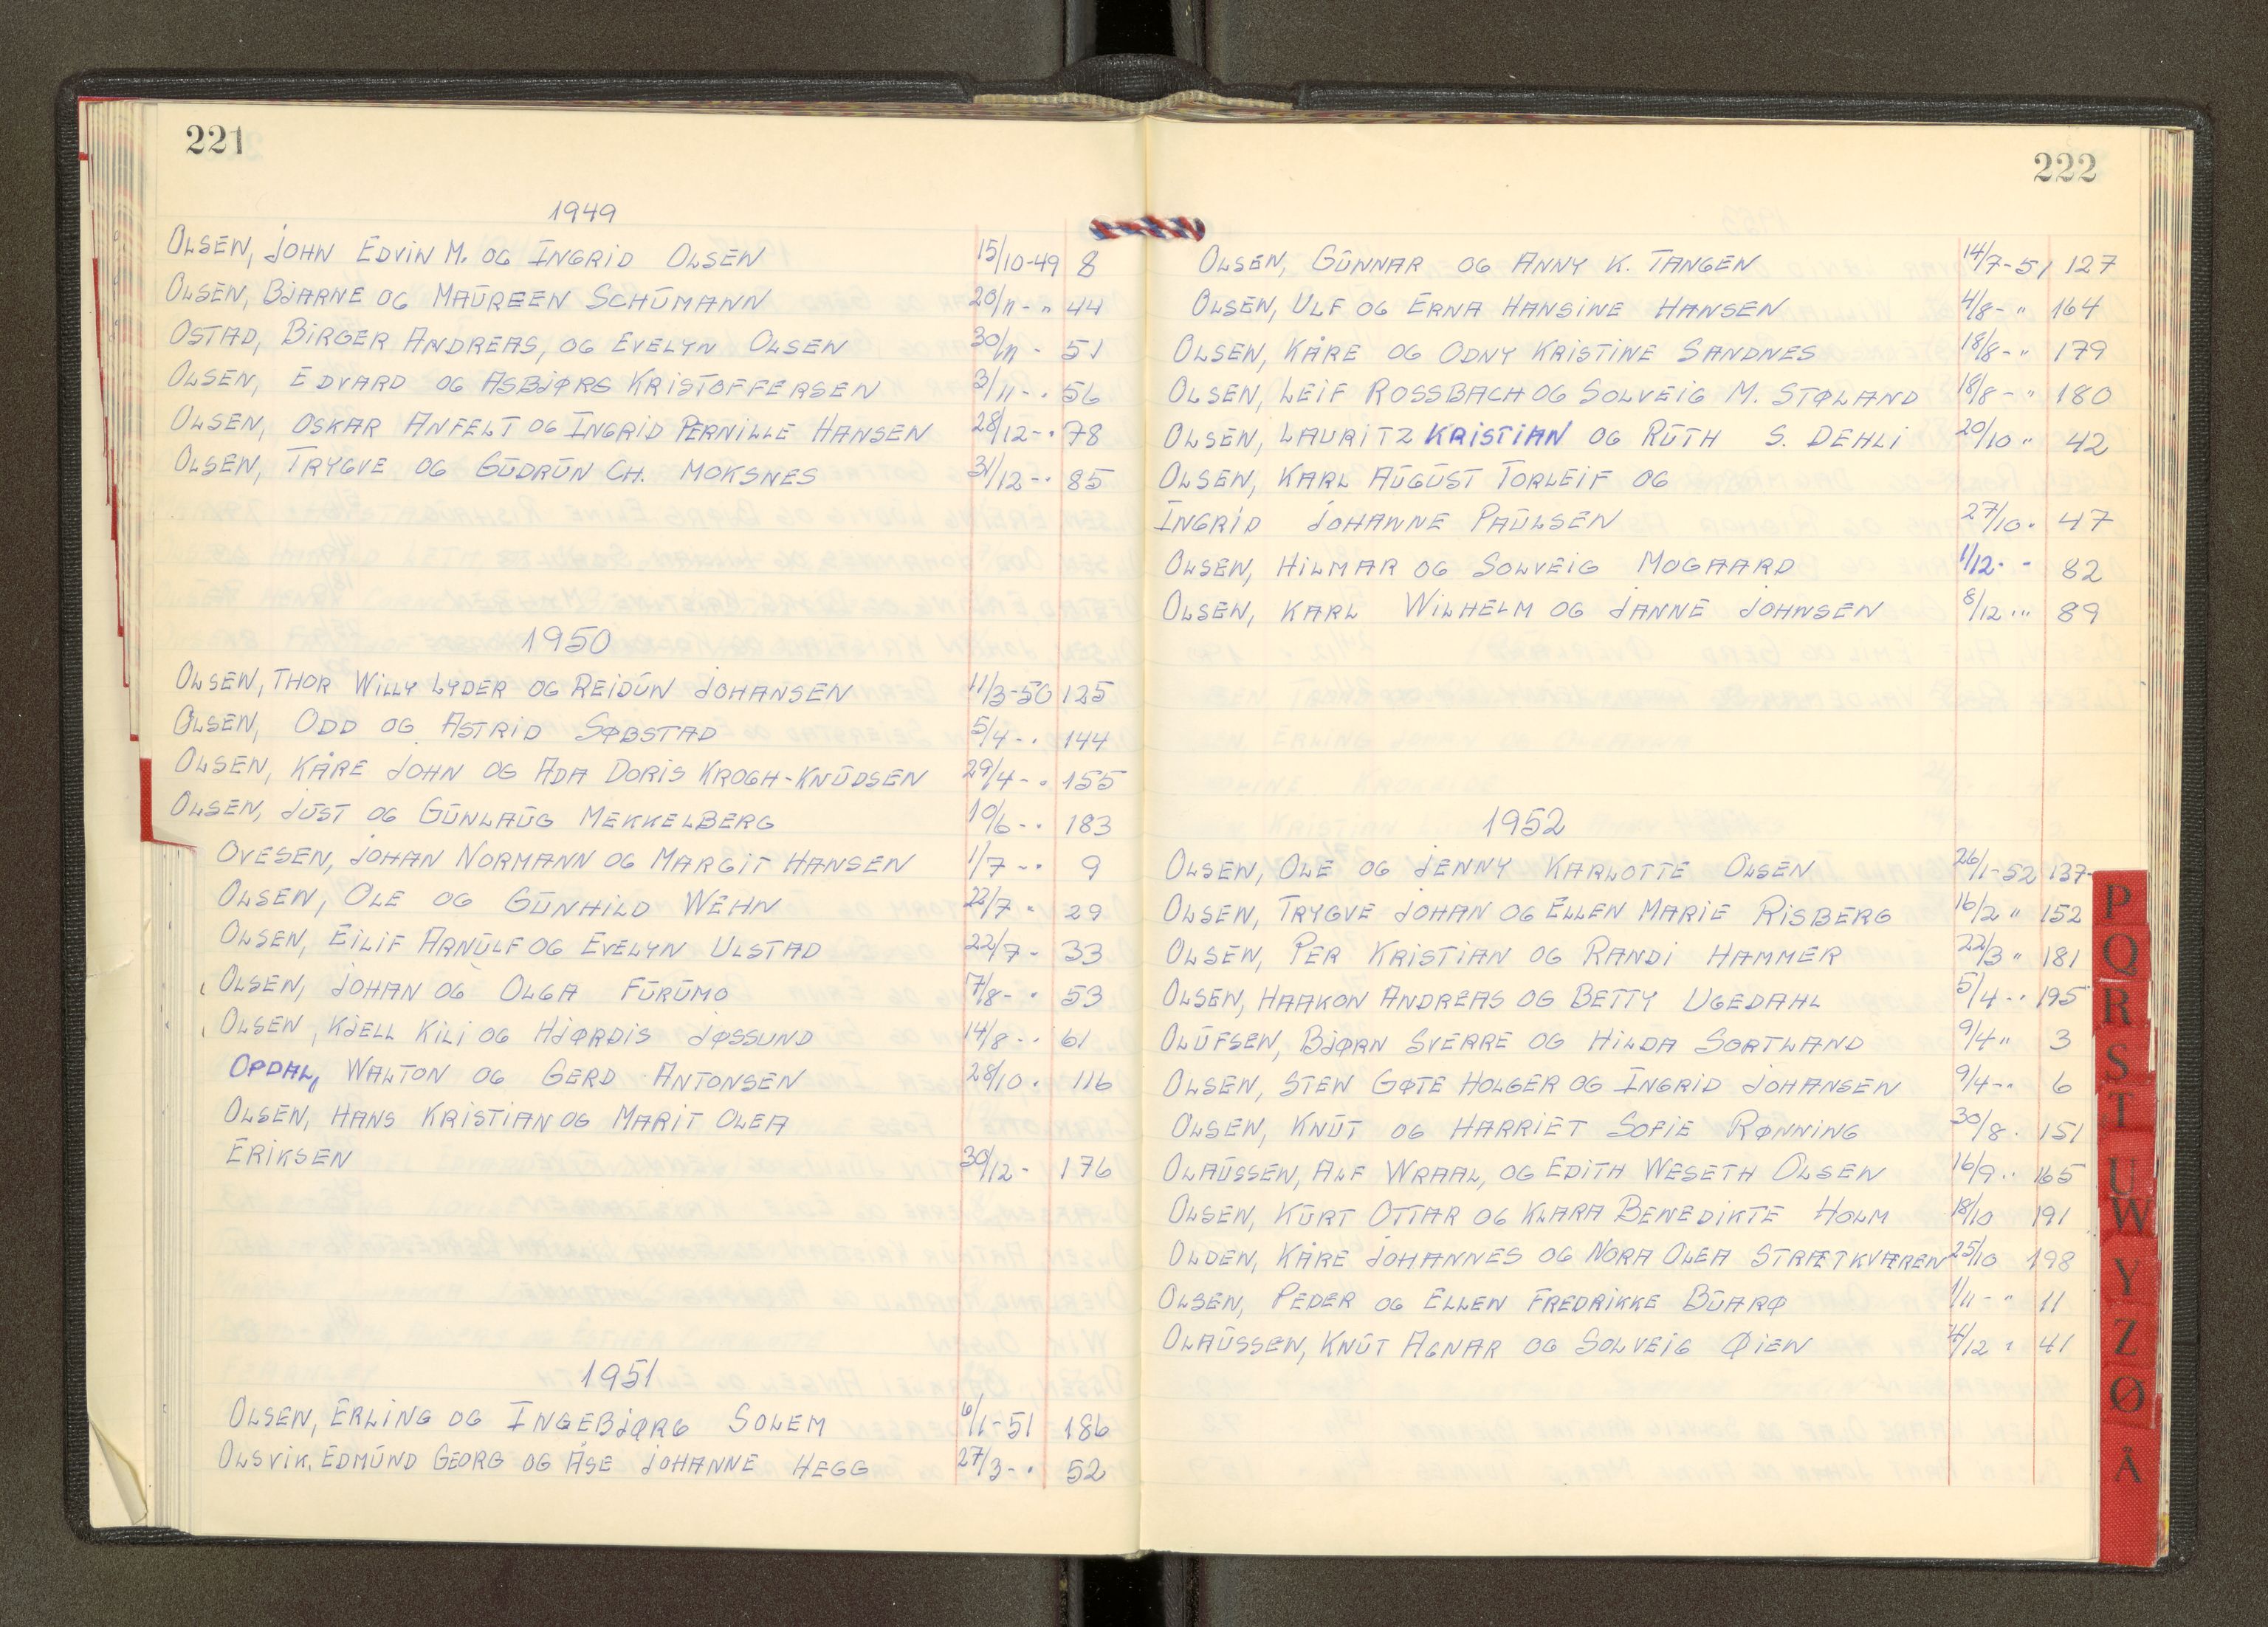 221
1949
OLSEN, JOHN EDVIN M. OG INGRID OLSEN 15/10-49 8
OLSEN, BJARNE OG MAUREEN SCHUMANN 20/11-" 44
OSTAD, BIRGER ANDREAS, OG EVELYN OLSEN 30/11 - 51
OLSEN, EDVARD OG ASBJØRG KRISTOFFERSEN 3/11-. 56
OLSEN, OSKAR ANFELT OG INGRID PERNILLE HANSEN 28/12-. 78
OLSEN, TRYGVE OG GUDRUN CH. MOKSNES 31/12-. 85
1950
OLSEN, THOR WILLY LYDER OG REIDUN JOHANSEN 11/3-50 125
OLSEN, ODD OG ASTRID SØBSTAD 5/4-. 144
OLSEN, KÅRE JOHN OG ADA DORIS KROGH-KNUDSEN 29/4-. 155
OLSEN, JUST OG GUNLAUG MEKKELBERG 10/6-. 183
OVESEN, JOHAN NORMANN OG MARGIT HANSEN 1/7-. 9
OLSEN, OLE OG GUNHILD WEHN 22/7 - 29
OLSEN, EILIF ARNULF OG EVELYN ULSTAD 22/7- 33
OLSEN, JOHAN OG OLGA FURUMO 7/8-. 53
OLSEN, KJELL KILI OG HJØRDIS JØSSUND 14/8-. 61
OPDAL, WALTON OG GERD ANTONSEN 28/10. 116
OLSEN, HANS KRISTIAN OG MARIT OLEA
ERIKSEN 30/12- 176
1951
OLSEN, ERLING OG INGEBJØRG SOLEM 6/1-51 186
OLSVIK, EDMUND GEORG OG ÅSE JOHANNE HEGG 27/3-. 52
222
OLSEN, GUNNAR OG ANNY K. TANGEN 14/7-51 127
OLSEN, ULF OG ERNA HANSINE HANSEN 4/8-" 164
OLSEN, KÅRE OG ODNY KRISTINE SANDNES 18/8-" 179
OLSEN, LEIF ROSSBACH OG SOLVEIG M. STØLAND 18/8-" 180
OLSEN, LAURITZ KRISTIAN OG RUTH S. DEHLI 20/10 " 42
OLSEN, KARL AUGUST TORLEIF OG
INGRID JOHANNE PAULSEN 27/10. 47
OLSEN, HILMAR OG SOLVEIG MOGAARD 1/12- - 82
OLSEN, KARL WILHELM OG JANNE JOHNSEN 8/12 " 89
1952
OLSEN, OLE OG JENNY KARLOTTE OLSEN 26/1-52 137-
OLSEN, TRYGVE JOHAN OG ELLEN MARIE RISBERG 16/2 " 152
OLSEN, PER KRISTIAN OG RANDI HAMMER 22/3 " 181
OLSEN, HAAKON ANDREAS OG BETTY UGEDAHL 5/4-. 195
OLUFSEN, BJØRN SVERRE OG HILDA SORTLAND 9/4 " 3
OLSEN, STEN GØTE HOLGER OG INGRID JOHANSEN 9/4-" 6
OLSEN, KNUT OG HARRIET SOFIE RØNNING 30/8. 151
OLAUSSEN, ALF WRAAL, OG EDITH WESETH OLSEN 16/9.. 165
OLSEN, KURT OTTAR OG KLARA BENEDIKTE HOLM 18/10 191
OLDEN, KÅRE JOHANNES OG NORA OLEA STRÆTKVÆREN 25/10 198
OLSEN, PEDER OG ELLEN FREDRIKKE BUARØ 1/11-" 11
OLAUSSEN, KNUT AGNAR OG SOLVEIG ØIEN 4/12 " 41
P
Q
R
S
T
U
W
Y
Z
Ø
Å